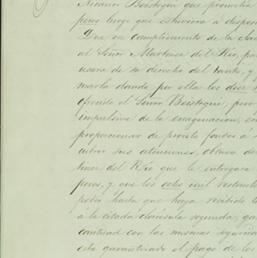 Nicanor Beistegui que prometia
pero luego que estuviera a dispos
Que en cumplimiento de la
al Señor Martinez del Rio, par
usara de su derecho del tanto, y
marla dando por ellos los diez
ofrecido el Señor Beistegui, pero
impulsiva de la enagenacion, en
proporcionar de pronto fondos á
cubrir sus atenciones, obtuvo de
tinez del Rio que le entregara
pesos, y que los ocho mil restante
poder hasta que haya recibido
á la citada clausula segunda, que
cantidad con las mismas
esta garantizado el pago de los